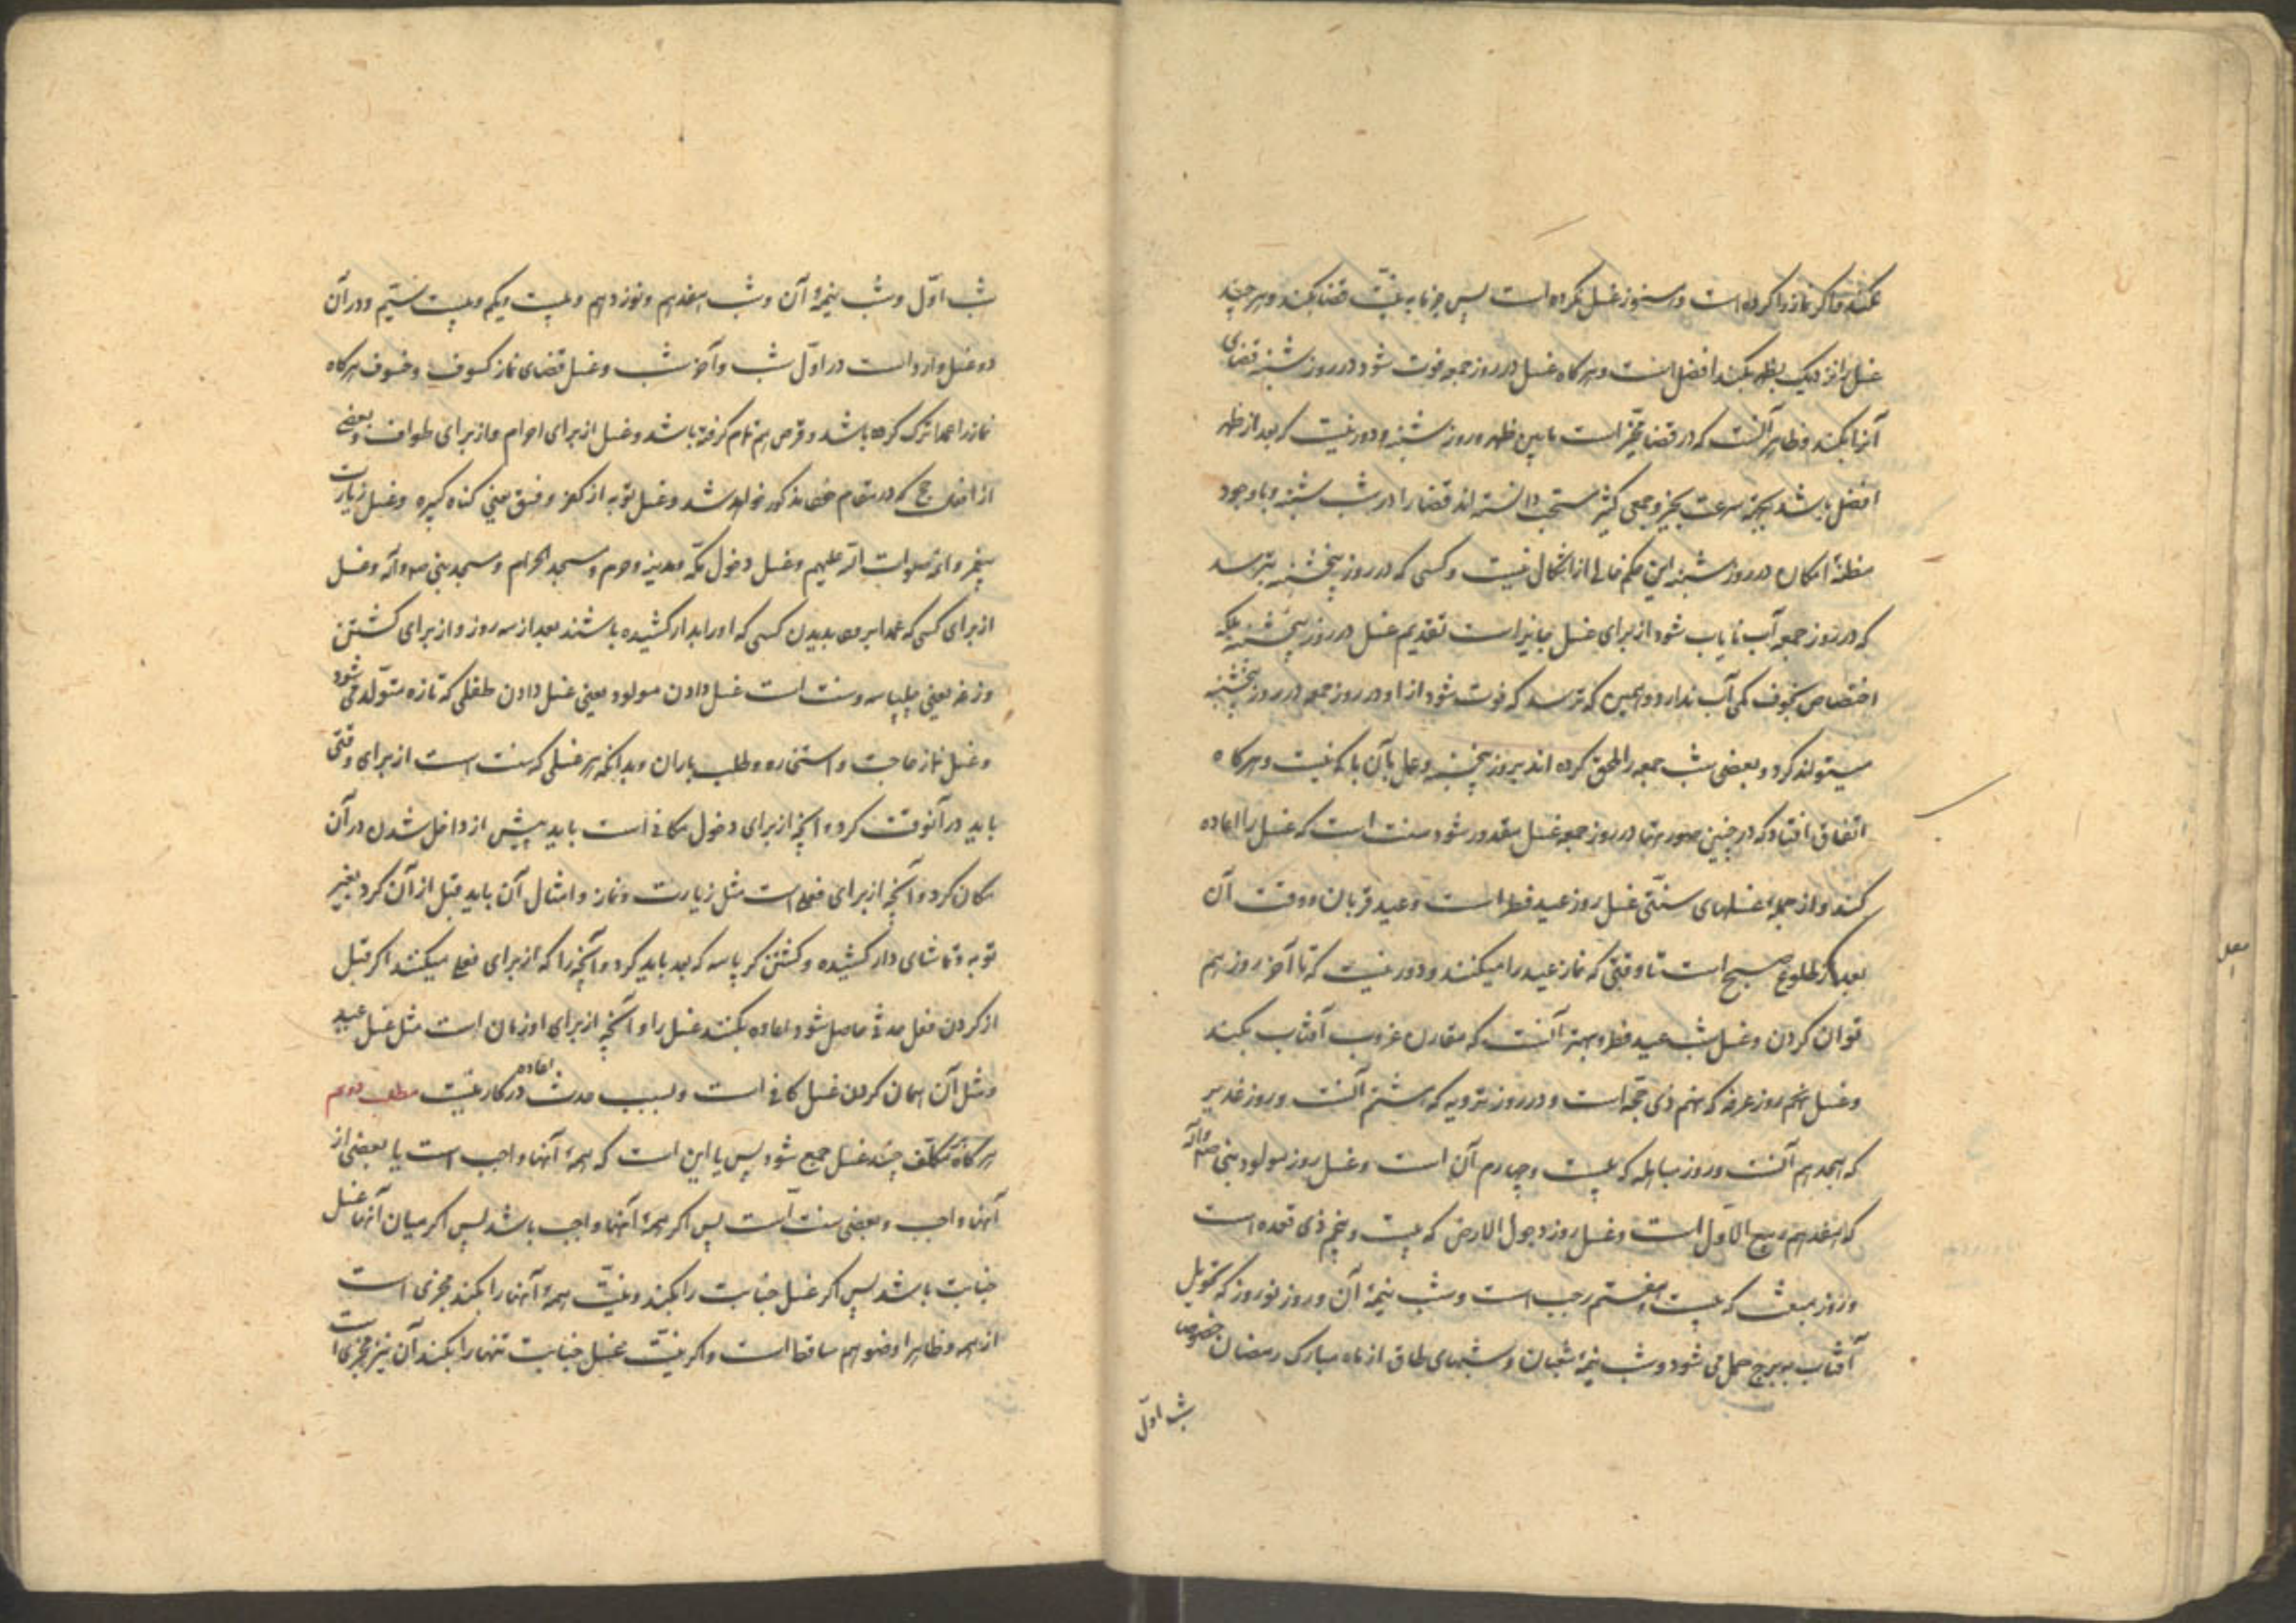 بکند و اگر نماز را کرده است و هنوز غسل نکرده است پس جزما به نیت قضا بکند و هر چند
غسل را نزدیک بظهر بکند افضل است و هرگاه غسل در روز جمعه فوت شود در روز شنبه قضای
آنرا بکند و ظاهر آنست که در قضا مخیّر است مابین ظهر و روز شنبه و دور نیست که بعد از ظهر
افضل باشد بجهة سرعت بخیر و جمعی کثیر مستحب دانسته اند قضا را در شب شنبه و با وجود
مظنهٔ امکان در روز شنبه این حکم خالی از اشکال نیست و کسی که در روز پنجشنبه بترسد
که در روز جمعه آب نایاب شود از برای غسل جایز است تقدیم غسل در روز پنجشنبه بلکه
اختصاص بخوف کمی آب ندارد و همین که ترسد که فوت شود از او در روز جمعه در روز پنجشنبه
میتواند کرد و بعضی شب جمعه را ملحق کرده اند بروز پنجشنبه و عمل بآن باکی نیست و هرگاه
اتفاق افتاد که در چنین صورتها در روز جمعه غسل مقدور شود سنت است که غسل را اعاده
کند و از جمله غسلهای سنّتی غسل روز عید فطر است و عید قربان و وقت آن
بعد از طلوع صبح است تا وقتی که نماز عید را میکنند و دور نیست که تا آخر روز هم
توان کردن و غسل شب عید فطر و بهتر آنست که مقارن غروب آفتاب بکند
و غسل نهم روز عرفه که نهم ذی حجّه است و در روز ترویه که هشتم آنست و روز غدیر
که هیجدهم آنست و روز مباهله که بیست و چهارم آن است و غسل روز مولود نبی صلعم و آله
که هفدهم ربیع الاوّل است و غسل روز دحو الارض که بیست و پنجم ذی قعده است
و روز مبعث که بیست و هفتم رجب است و شب نیمهٔ آن و روز نوروز که تحویل
آفتاب ببرج حمل می شود و شب نیمهٔ شعبان و شبهای طاق از ماه مبارک رمضان خصوص
شب اوّل
شب اوّل و شب نیمهٔ آن و شب هفدهم و نوزدهم و بیست و یکم و بیست و سیّم و در آن
دو غسل وارد است در اوّل شب و آخر شب و غسل قضای نماز کسوف و خسوف هرگاه
نماز را عمدا ترک کرده باشد و قرص هم تمام گرفته باشد و غسل از برای احرام و از برای طواف و بعضی
از افعال حج که در مقام خود مذکور خواهد شد و غسل توبه از کفر و فسق یعنی گناه کبیره و غسل زیارت
پیغمبر و ائمه صلوات الله علیهم و غسل دخول مکّه و مدینه و حرم و مسجد الحرام و مسجد نبی ص و آله و غسل
از برای کسی که عمدا برود بدیدن کسی که او را بدار کشیده باشند بعد از سه روز و از برای کشتن
وزغه یعنی چلپاسه و سنت است غسل دادن مولود یعنی غسل دادن طفلی که تازه متولّد می شود
و غسل نماز حاجت و استخاره و طلب باران و بدانکه هر غسلی که سنت است از برای وقتی
باید در آنوقت کرد و آنچه از برای دخول مکانی است باید پیش از داخل شدن در آن
مکان کرد و آنچه از برای فعلی است مثل زیارت و نماز و امثال آن باید قبل از آن کرد بغیر
توبه و تماشای دار کشیده و کشتن کرپاسه که بعد باید کرد و آنچه را که از برای فعلی میکنند اگر قبل
از کردن فعل حدثی حاصل شود اعاده بکند غسل را و آنچه از برای او زمان است مثل غسل عید
و مثل آن همان کردن غسل کافی است و بسبب حدث اعاده در کار نیست مطلب دویم
هرگاه بر مکلّف چند غسل جمع شود پس یا این است که همهٔ آنها واجب است یا بعضی از
آنها واجب و بعضی سنت است پس اگر همهٔ آنها واجب باشد پس اگر میان آنها غسل
جنابت باشد پس اگر غسل جنابت را بکند و نیّت همهٔ آنها را بکند مجزی است
از همه و ظاهرا وضو هم ساقط است و اگر نیّت غسل جنابت تنها را بکند آن نیز مجزی است